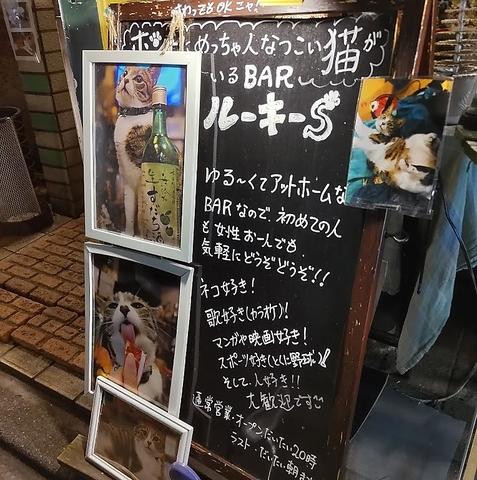 さわってもOKニャ!
めっちゃ人なつこい猫が
いるBAR
ルーキーS
ゆる〜くてアットホームな
BARなので、初めての人
も女性お一人でも
気軽にどうぞどうぞ!!
ネコ好き!
歌好き(カラオケ)!
マンガや映画好き!
スポーツ好き(とくに野球)
そして、人好き!!
大歓迎です
通常営業・オープンだいたい20時
ラスト・だいたい朝ま